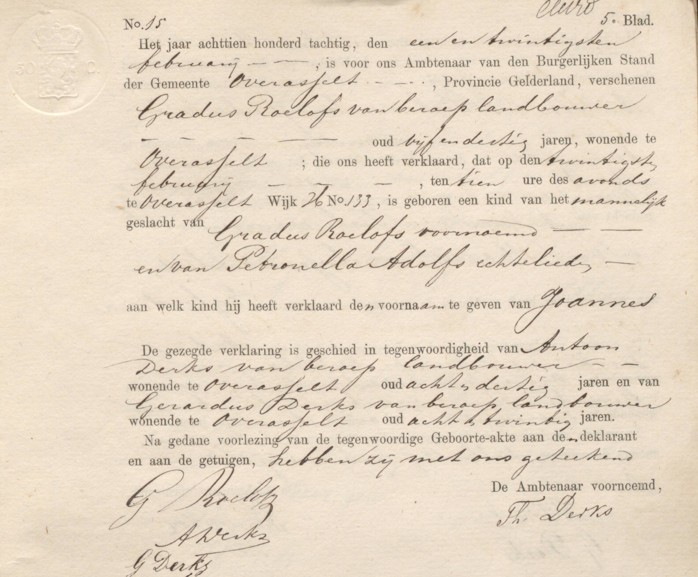 No. 15 5e Blad.
Het jaar achttien honderd tachtig, den een en twintigsten
februarij — — , is voor ons Ambtenaar van den Burgerlijken Stand
der Gemeente Overasselt — — , Provincie Gelderland, verschenen
Gradus Roelofs van beroep landbouwer
— — — — — oud vijf en dertig jaren, wonende te
Overasselt ; die ons heeft verklaard, dat op den twintigste
februarij — — — — , ten tien ure des avonds
te Overasselt Wijk No. 133, is geboren een kind van het mannelijk
geslacht van Gradus Roelofs voornoemd — —
en van Petronella Adolfs echtelieden —
aan welk kind hij heeft verklaard den voornaam te geven van Joannes
De gezegde verklaring is geschied in tegenwoordigheid van Antoon
Derks van beroep landbouwer — —
wonende te Overasselt oud acht en dertig jaren en van
Gerardus Derks van beroep landbouwer
wonende te Overasselt oud acht en twintig jaren.
Na gedane voorlezing van de tegenwoordige Geboorte-akte aan den deklarant
en aan de getuigen, hebben zij met ons geteekend
De Ambtenaar voornoemd,
G Roelofs
Th. Derks
A Derks
G Derks